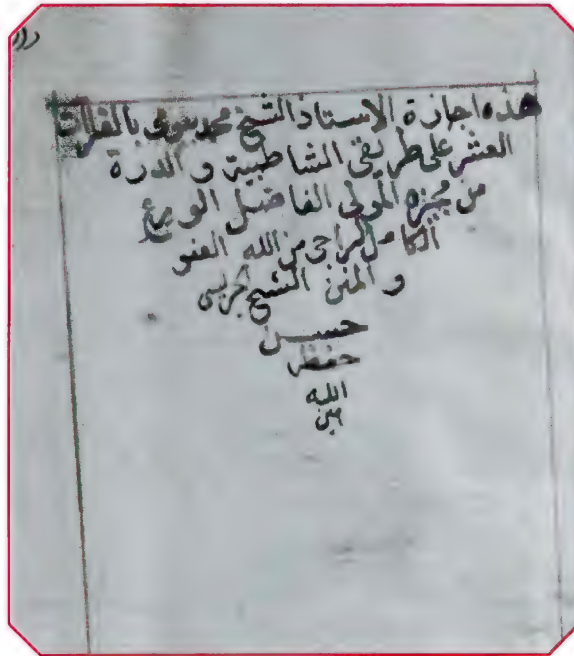 هذه اجازة الاستاذ الشيخ محمد بيومي بالقراات
العشر على طريقى الشاطبية و الدرة
من مجيزه المولى الفاضل الورع
الكامل الراجى من الله العفو
و المنن الشيخ الجريسى
حسن
حفظه
الله